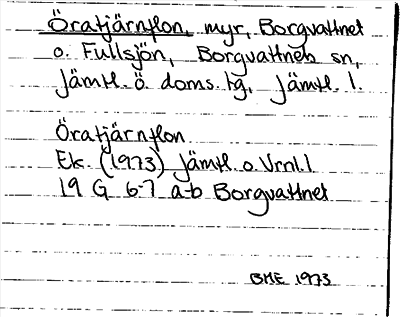 Öratjärnflon, myr, Borgvattnet
o. Fullsjön, Borgvattnets sn,
Jämtl. ö. doms. tg, Jämtl. l.
Öratjärnflon
Ek. (1973) Jämtl. o. Vrnl. l
19 G 6-7 a-b Borgvattnet
BME 1973